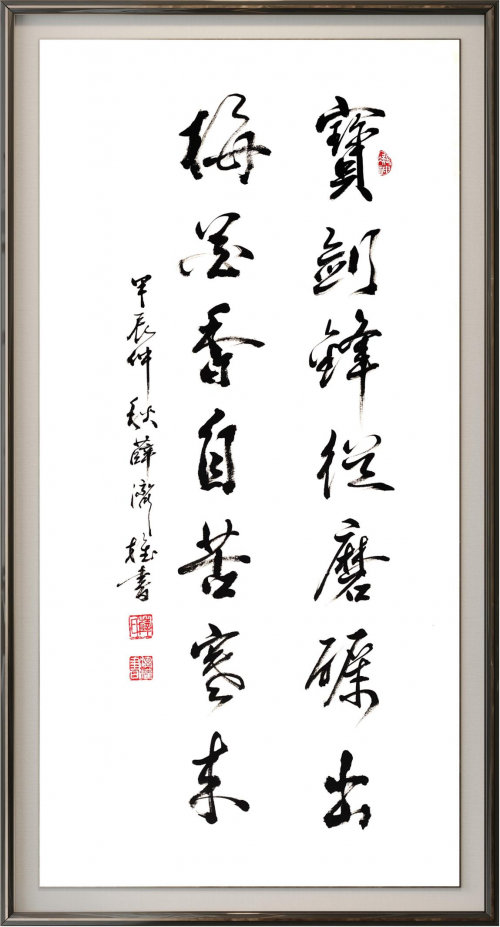 寶劍鋒從磨礪出
梅花香自苦寒来
甲辰仲秋薛雄書